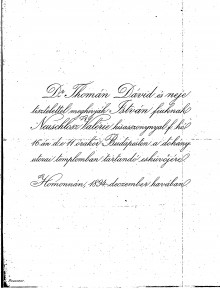 Dr Thomán Dávid és neje
tisztelettel meghívják István fiuknak
Neuschlosz Valérie kisasszonynyal f. hó
16-án d.e. 11 órakor Budapesten a dohány
utcai templomban tartandó esküvőjére
Homonnán, 1894 december havában